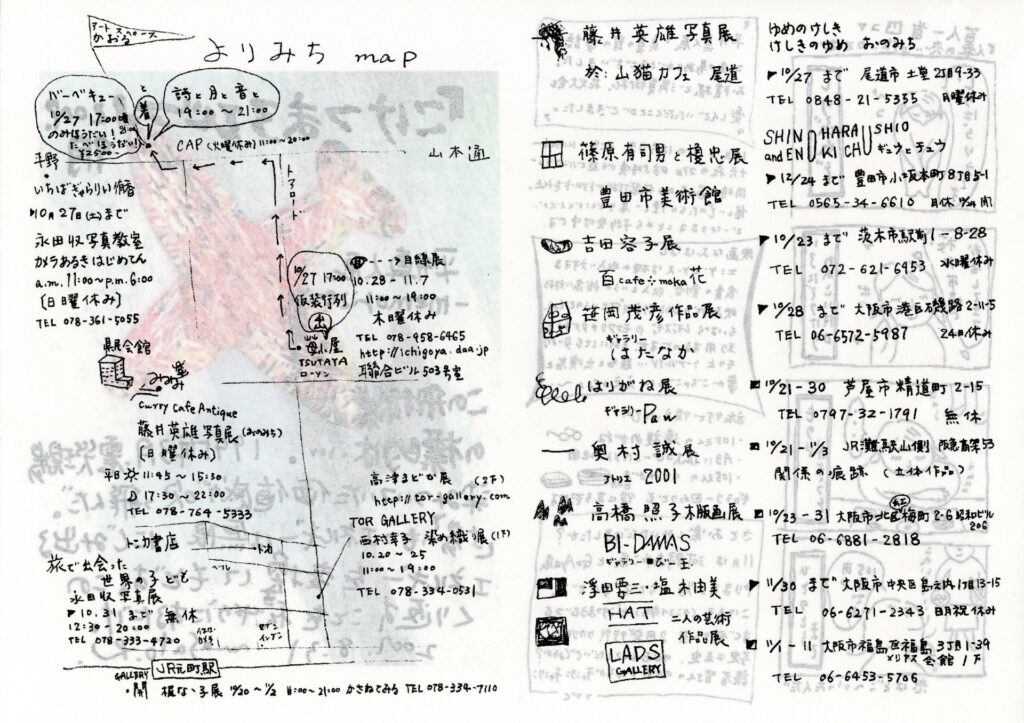 アートスペース
かおる
よりみち map
バーベキュー
10/27 17:00
のみほうだい!
たべほうだい!
¥2500-
と
着
詩と月と音と
19:00 ~ 21:00
CAP (火曜休み) 11:00~20:00
山本通
トアロード
平野
いちばぎゃらりぃ侑香
▶10月27日(土)まで
永田収写真教室
カメラあるきはじめてん
a.m. 11:00~p.m. 6:00
〔日曜休み〕
TEL 078-361-5055
10/27 17:00
仮装行列
出
TSUTAYA
ローソン
---→目線展
10.28 - 11.7
11:00~19:00
木曜休み
TEL 078-958-6465
http://ichigoya.daa.jp
聯合ビル503号室
県民会館
Curry Cafe Antique
藤井英雄写真展 (おのみち)
〔日曜休み〕
平日 11:45 ~ 15:30
17:30 ~ 22:00
TEL 078-764-5333
トンカ書店
トンカ
ベル
旅で出会った
世界の子ども
永田収写真展
▶10.31まで 無休
12:30-20:00
TEL 078-333-4720
セブンイレブン
高津まどか展 (2F)
http://tor-gallery.com
TOR GALLERY
西村幸子 染め織り展 (1F)
10.20 ~ 25
11:00 ~ 19:00
TEL 078-334-0531
JR元町駅
GALLERY
・開 梶なゝ子展 10/20~11/2 11:00~21:00 かさねてみる TEL 078-334-7110
藤井英雄写真展
於:山猫カフェ 尾道
篠原有司男と榎忠展
豊田市美術館
吉田容子展
百cafe÷moka花
笹岡茂彦作品展
ギャラリー
はたなか
はりがね展
ギャラリーPaw
奥村誠展
アトリエ 2001
高橋照子木版画展
BI-DAMAS
ギャラリーびー玉
浮田要三・塩木由美
HAT
二人の芸術
作品展
LADS
GALLERY
ゆめのけしき
けしきのゆめ おのみち
▶10/27 まで 尾道市土堂2丁目9-33
TEL 0848-21-5355 月曜休み
SHINOHARA USHIO
and ENOKI CHU ギュウとチュウ
▶12/24 まで 豊田市小坂本町8丁目5-1
TEL 0565-34-6610
▶10/23 まで 茨木市駅前1-8-28
TEL 072-621-6953 水曜休み
▶10/28 まで 大阪市港区石磯路2-11-5
TEL 06-6572-5987 24日休み
10/21-30 芦屋市精道町2-15
TEL 0797-32-1791 無休
10/21-11/3 JR灘駅山側 阪急高架53
関係の痕跡 (立体作品)
10/23-31 大阪市北区梅町2-6 昭和ビル
206
TEL 06-6881-2818
▶11/30 まで 大阪市中央区島之内1丁目13-15
TEL 06-6271-2343 日月祝休み
11/1-11 大阪市福島区福島3丁目1-39
メリヤス会館1F
TEL 06-6453-5706